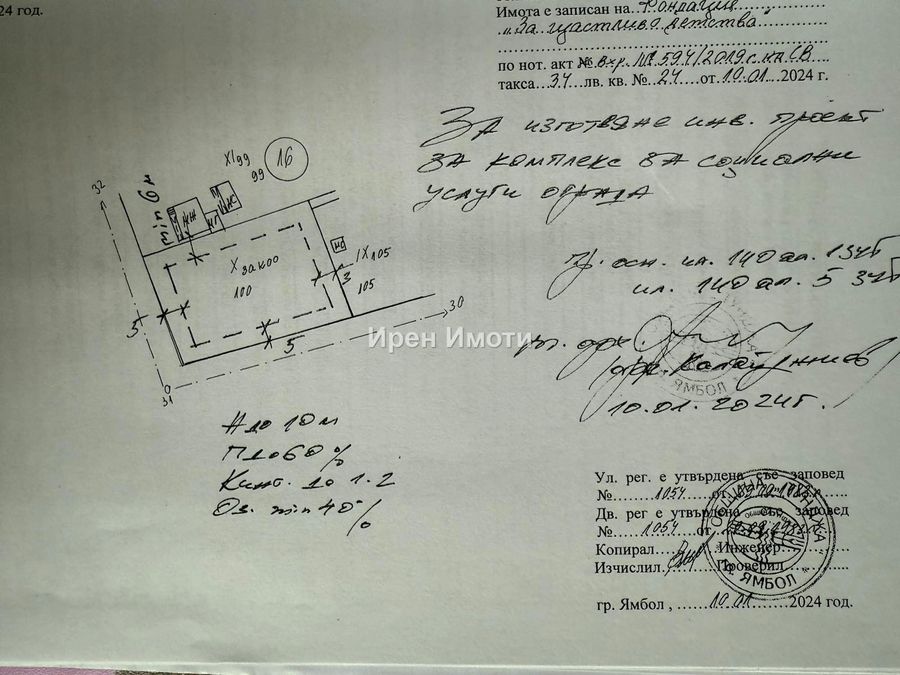 24 год.
Имота е записан на...Фондация
„За щастливо детство
по нот. акт № вх. № 594/2019г. на СВ
такса...34...лв. кв. №...24...от 10.01...2024 г.
За изготвяне инв. проект
за комплекс за социални
услуги
16
XI 99
99
min 6м
32
X за КОО
100
IX 105
105
3
30
5
5
31
Ирен Имоти
осн. чл. 140 ал. 1 ЗУТ
чл. 140 ал. 5 ЗУТ
ЯМБОЛ
10.01.2024г.
H до 10 м
Пл до 60 %
Кинт. до 1.2
Оз. min 40 %
Ул. рег. е утвърдена със заповед
№.......1054.......от
Дв. рег е утвърдена със заповед
№.......1054.......от
Копирал.......Инженер.......
Изчислил.......Проверил.......
ОБЩИНА "ТУНДЖА"
ЯМБОЛ
гр. Ямбол , .......10.01.......2024 год.